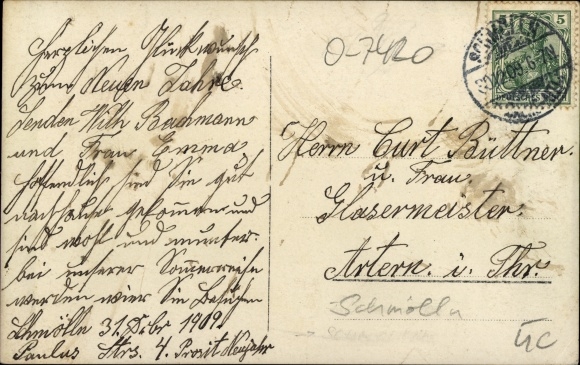 Herzlichen Glückwunsch
zum Neuen Jahre.
Senden Wilh Bachmann
und Frau Emma
hoffentlich sind Sie gut
nach gekommen und
sind wohl und munter.
bei unserer Sommerreise
werden wier Sie
Schmölln 31. Dzbr 1909.
Paulus Strs. 4. Prosit Neujahr
O-7420
5
SCHMÖLLN
Herrn Curt Büttner.
u. Frau
Glasermeister.
Artern. i. Thr.
Schmölln